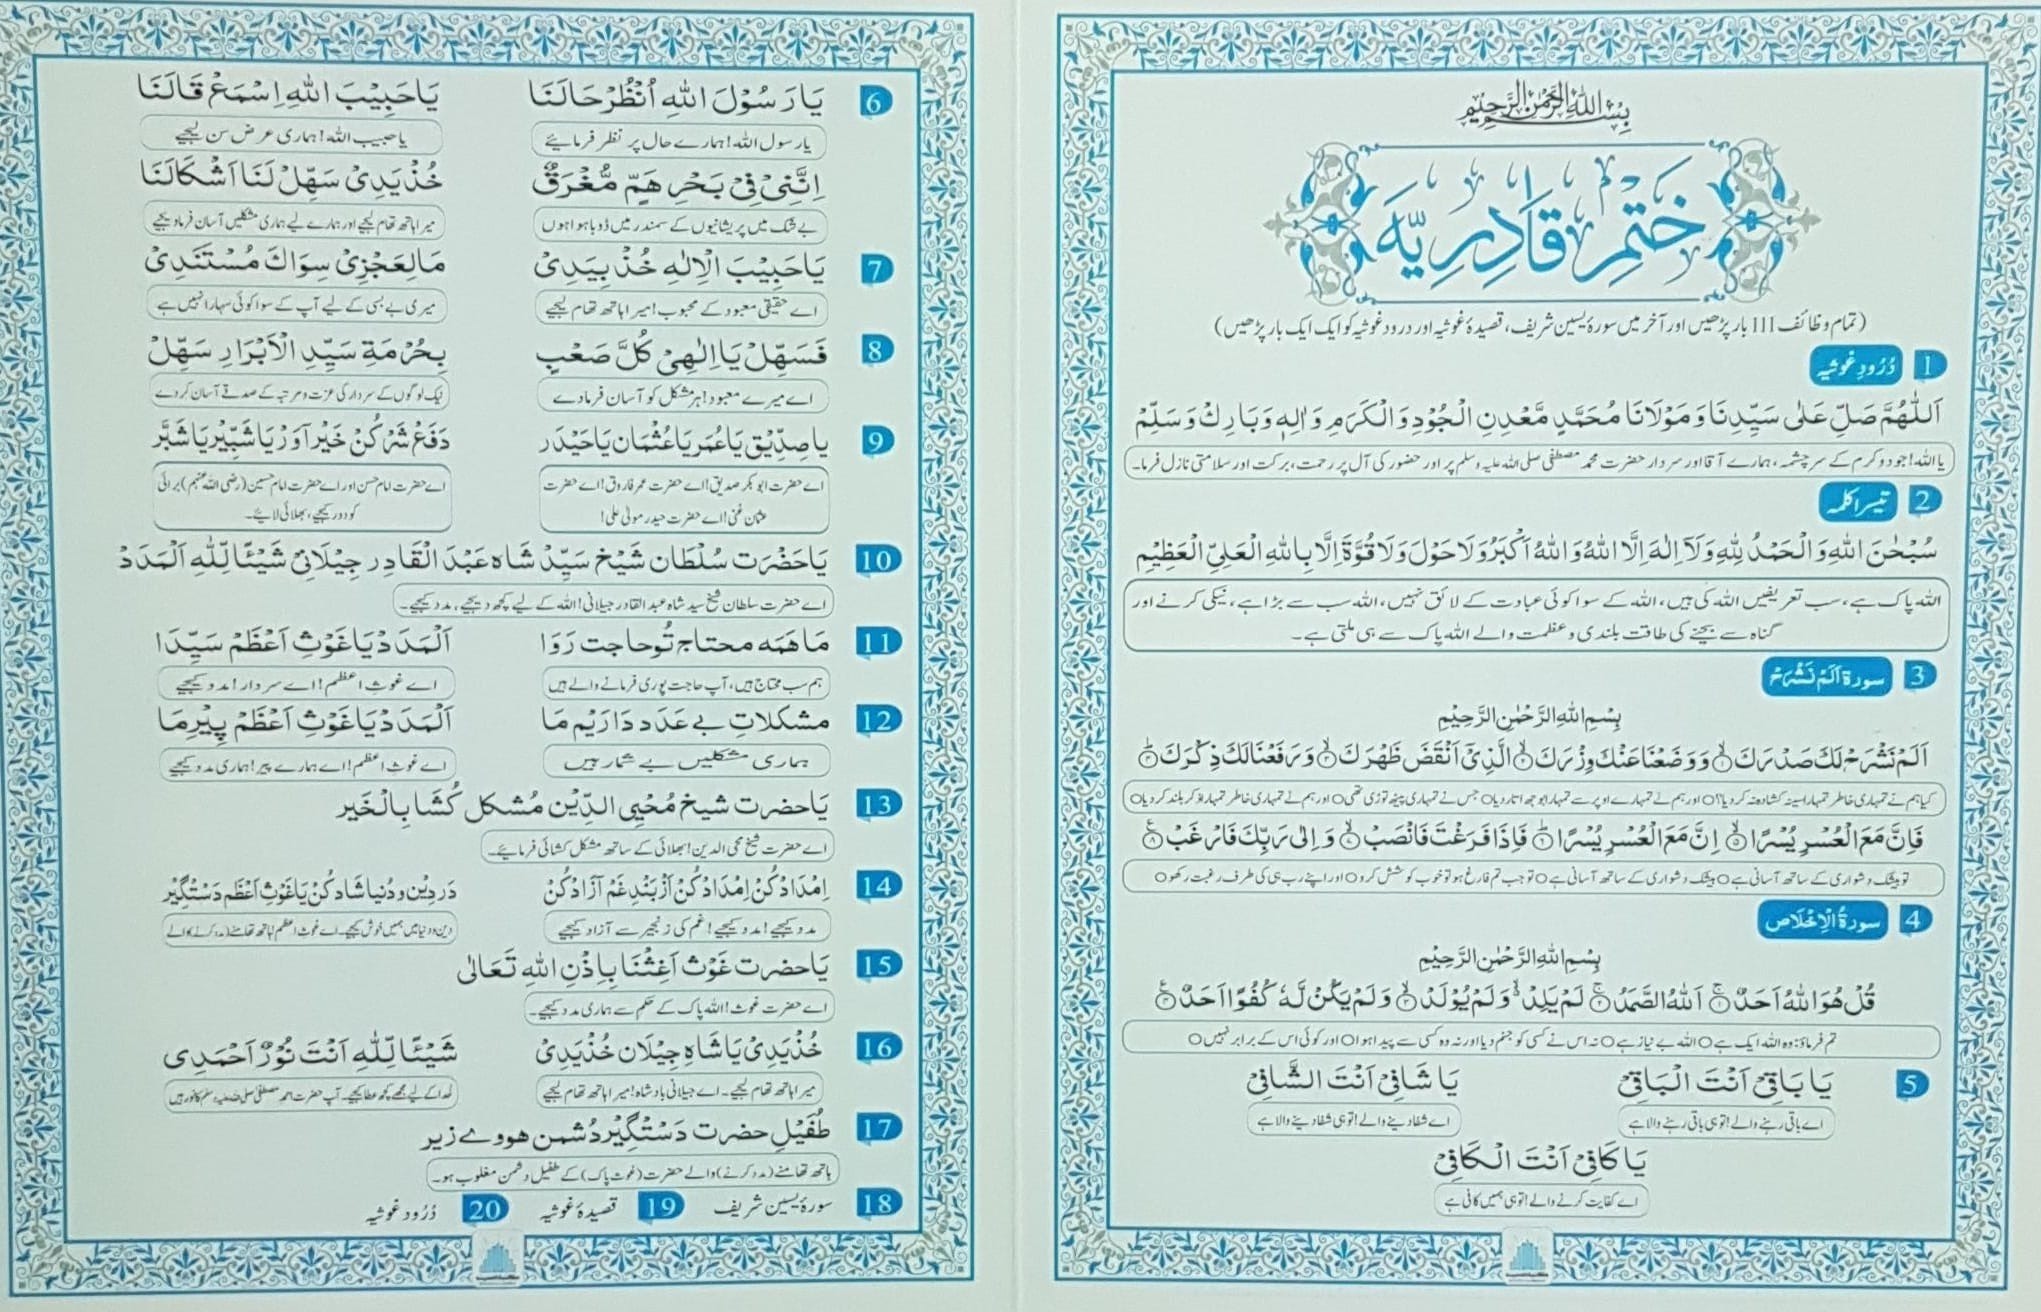 بِسْمِ اللهِ الرَّحْمٰنِ الرَّحِيْمِ
ختمِ قادِریّہ
(تمام وظائف 111 بار پڑھیں اور آخر میں سورۂ یٰسین شریف، قصیدۂ غوثیہ اور درود غوثیہ کو ایک ایک بار پڑھیں)
1 دُرُودِ غوثیہ
اَللّٰهُمَّ صَلِّ عَلٰى سَيِّدِنَا وَمَوْلَانَا مُحَمَّدٍ مَّعْدِنِ الْجُوْدِ وَالْكَرَمِ وَاٰلِهٖ وَبَارِكْ وَسَلِّمْ
یا اللہ! جود و کرم کے سرچشمہ، ہمارے آقا اور سردار حضرت محمد مصطفی صلی اللہ علیہ وسلم پر اور حضور کی آل پر رحمت، برکت اور سلامتی نازل فرما۔
2 تیسرا کلمہ
سُبْحٰنَ اللهِ وَالْحَمْدُ لِلّٰهِ وَلَآ اِلٰهَ اِلَّا اللهُ وَاللهُ اَكْبَرُ وَلَا حَوْلَ وَلَا قُوَّةَ اِلَّا بِاللهِ الْعَلِيِّ الْعَظِيْمِ
اللہ پاک ہے، سب تعریفیں اللہ کی ہیں، اللہ کے سوا کوئی عبادت کے لائق نہیں، اللہ سب سے بڑا ہے، نیکی کرنے اور
گناہ سے بچنے کی طاقت بلندی و عظمت والے اللہ پاک سے ہی ملتی ہے۔
3 سورۃ اَلَمْ نَشْرَحْ
بِسْمِ اللهِ الرَّحْمٰنِ الرَّحِيْمِ
اَلَمْ نَشْرَحْ لَكَ صَدْرَكَ ۙ۱ وَ وَضَعْنَا عَنْكَ وِزْرَكَ ۙ۲ الَّذِيْۤ اَنْقَضَ ظَهْرَكَ ۙ۳ وَ رَفَعْنَا لَكَ ذِكْرَكَ ؕ۴
کیا ہم نے تمہاری خاطر تمہارا سینہ کشادہ نہ کر دیا؟○ اور ہم نے تمہارے اوپر سے تمہارا بوجھ اتار دیا○ جس نے تمہاری پیٹھ توڑی تھی○ اور ہم نے تمہاری خاطر تمہارا ذکر بلند کر دیا○
فَاِنَّ مَعَ الْعُسْرِ يُسْرًا ۙ۵ اِنَّ مَعَ الْعُسْرِ يُسْرًا ؕ۶ فَاِذَا فَرَغْتَ فَانْصَبْ ۙ۷ وَ اِلٰى رَبِّكَ فَارْغَبْ ۸
تو بیشک دشواری کے ساتھ آسانی ہے○ بیشک دشواری کے ساتھ آسانی ہے○ تو جب تم فارغ ہو تو خوب کوشش کرو○ اور اپنے رب ہی کی طرف رغبت رکھو○
4 سورۃُ الْاِخْلَاص
بِسْمِ اللهِ الرَّحْمٰنِ الرَّحِيْمِ
قُلْ هُوَ اللهُ اَحَدٌ ۚ۱ اَللهُ الصَّمَدُ ۚ۲ لَمْ يَلِدْ ۙ وَ لَمْ يُوْلَدْ ۙ۳ وَ لَمْ يَكُنْ لَّهٗ كُفُوًا اَحَدٌ ۴
تم فرماؤ: وہ اللہ ایک ہے○ اللہ بے نیاز ہے○ نہ اس نے کسی کو جنم دیا اور نہ وہ کسی سے پیدا ہوا○ اور کوئی اس کے برابر نہیں○
5 يَا بَاقِيْ اَنْتَ الْبَاقِيْ يَا شَافِيْ اَنْتَ الشَّافِيْ
اے باقی رہنے والے! تو ہی باقی رہنے والا ہے اے شفا دینے والے! تو ہی شفا دینے والا ہے
يَا كَافِيْ اَنْتَ الْكَافِيْ
اے کفایت کرنے والے! تو ہی ہمیں کافی ہے
6 يَا رَسُوْلَ اللهِ اُنْظُرْ حَالَنَا يَا حَبِيْبَ اللهِ اِسْمَعْ قَالَنَا
یا رسول اللہ! ہمارے حال پر نظر فرمائیے یا حبیب اللہ! ہماری عرض سن لیجیے
اِنَّنِيْ فِيْ بَحْرِ هَمٍّ مُّغْرَقٌ خُذْ يَدِيْ سَهِّلْ لَنَا اَشْكَالَنَا
بے شک میں پریشانیوں کے سمندر میں ڈوبا ہوا ہوں میرا ہاتھ تھام لیجیے اور ہمارے لیے ہماری مشکلیں آسان فرما دیجیے
7 يَا حَبِيْبَ الْاِلٰهِ خُذْ بِيَدِيْ مَا لِعَجْزِيْ سِوَاكَ مُسْتَنَدِيْ
اے حقیقی معبود کے محبوب! میرا ہاتھ تھام لیجیے میری بے بسی کے لیے آپ کے سوا کوئی سہارا نہیں ہے
8 فَسَهِّلْ يَا اِلٰهِيْ كُلَّ صَعْبٍ بِحُرْمَةِ سَيِّدِ الْاَبْرَارِ سَهِّلْ
اے میرے معبود! ہر مشکل کو آسان فرما دے نیک لوگوں کے سردار کی عزت و مرتبہ کے صدقے آسان کر دے
9 يا صِدِّيْق يَا عُمَر يَا عُثْمَان يَا حَيْدَر دَفَعْ شَرْ كُنْ خَيْر آوَرْ يَا شَبِّيْر يَا شَبَّر
اے حضرت ابو بکر صدیق! اے حضرت عمر فاروق! اے حضرت اے حضرت امام حسن اور اے حضرت امام حسین (رضی اللہ عنہم) برائی
عثمان غنی! اے حضرت حیدر مولیٰ علی! کو دور کیجیے، بھلائی لائیے۔
10 يَا حَضْرَت سُلْطَان شَيْخ سَيِّدْ شَاه عَبْدَ الْقَادِر جِيْلَانِيْ شَيْئًا لِّلّٰهِ اَلْمَدَدْ
اے حضرت سلطان شیخ سید شاہ عبد القادر جیلانی! اللہ کے لیے کچھ دیجیے، مدد کیجیے۔
11 مَا هَمَه محتاج تُو حاجت رَوَا اَلْمَدَدْ يَا غَوْثِ اَعْظَمْ سَيِّدَا
ہم سب محتاج ہیں، آپ حاجت پوری فرمانے والے ہیں اے غوثِ اعظم! اے سردار! مدد کیجیے
12 مشکلاتِ بے عَدَد دَارِيْم مَا اَلْمَدَدْ يَا غَوْثِ اَعْظَمْ پِيْرِ مَا
ہماری مشکلیں بے شمار ہیں اے غوثِ اعظم! اے ہمارے پیر! ہماری مدد کیجیے
13 يَا حضرت شیخ مُحْيِي الدِّيْن مُشکل كُشَا بِالْخَير
اے حضرت شیخ محی الدین! بھلائی کے ساتھ مشکل کشائی فرمائیے۔
14 اِمْدَادْ كُنْ اِمْدَادْ كُنْ اَزْ بَنْدِ غَمْ آزَادْ كُنْ دَر دِیْن و دُنیا شاد کُنْ یَا غَوْثِ اَعْظَم دَسْتگِیْر
مدد کیجیے! مدد کیجیے! غم کی زنجیر سے آزاد کیجیے دین و دنیا میں ہمیں خوش کیجیے۔ اے غوث اعظم! ہاتھ تھامنے (مدد کرنے) والے
15 يَا حضرت غَوْث اَغِثْنَا بِاِذْنِ اللهِ تَعَالٰى
اے حضرت غوث! اللہ پاک کے حکم سے ہماری مدد کیجیے۔
16 خُذْ يَدِيْ يَا شَاهِ جِيْلَان خُذْ يَدِيْ شَيْئًا لِّلّٰهِ اَنْتَ نُوْرٌ اَحْمَدِى
میرا ہاتھ تھام لیجیے۔ اے جیلانی بادشاہ! میرا ہاتھ تھام لیجیے خدا کے لیے مجھے کچھ عطا کیجیے۔ آپ حضرت احمد مصطفیٰ صلی اللہ علیہ وسلم کا نور ہیں
17 طُفَيْلِ حضرت دَسْتگِيْر دُشمن هووے زیر
ہاتھ تھامنے (مدد کرنے) والے حضرت (غوث پاک) کے طفیل دشمن مغلوب ہو۔
18 سورۂ یٰسین شریف 19 قصیدۂ غوثیہ 20 دُرُود غوثیہ